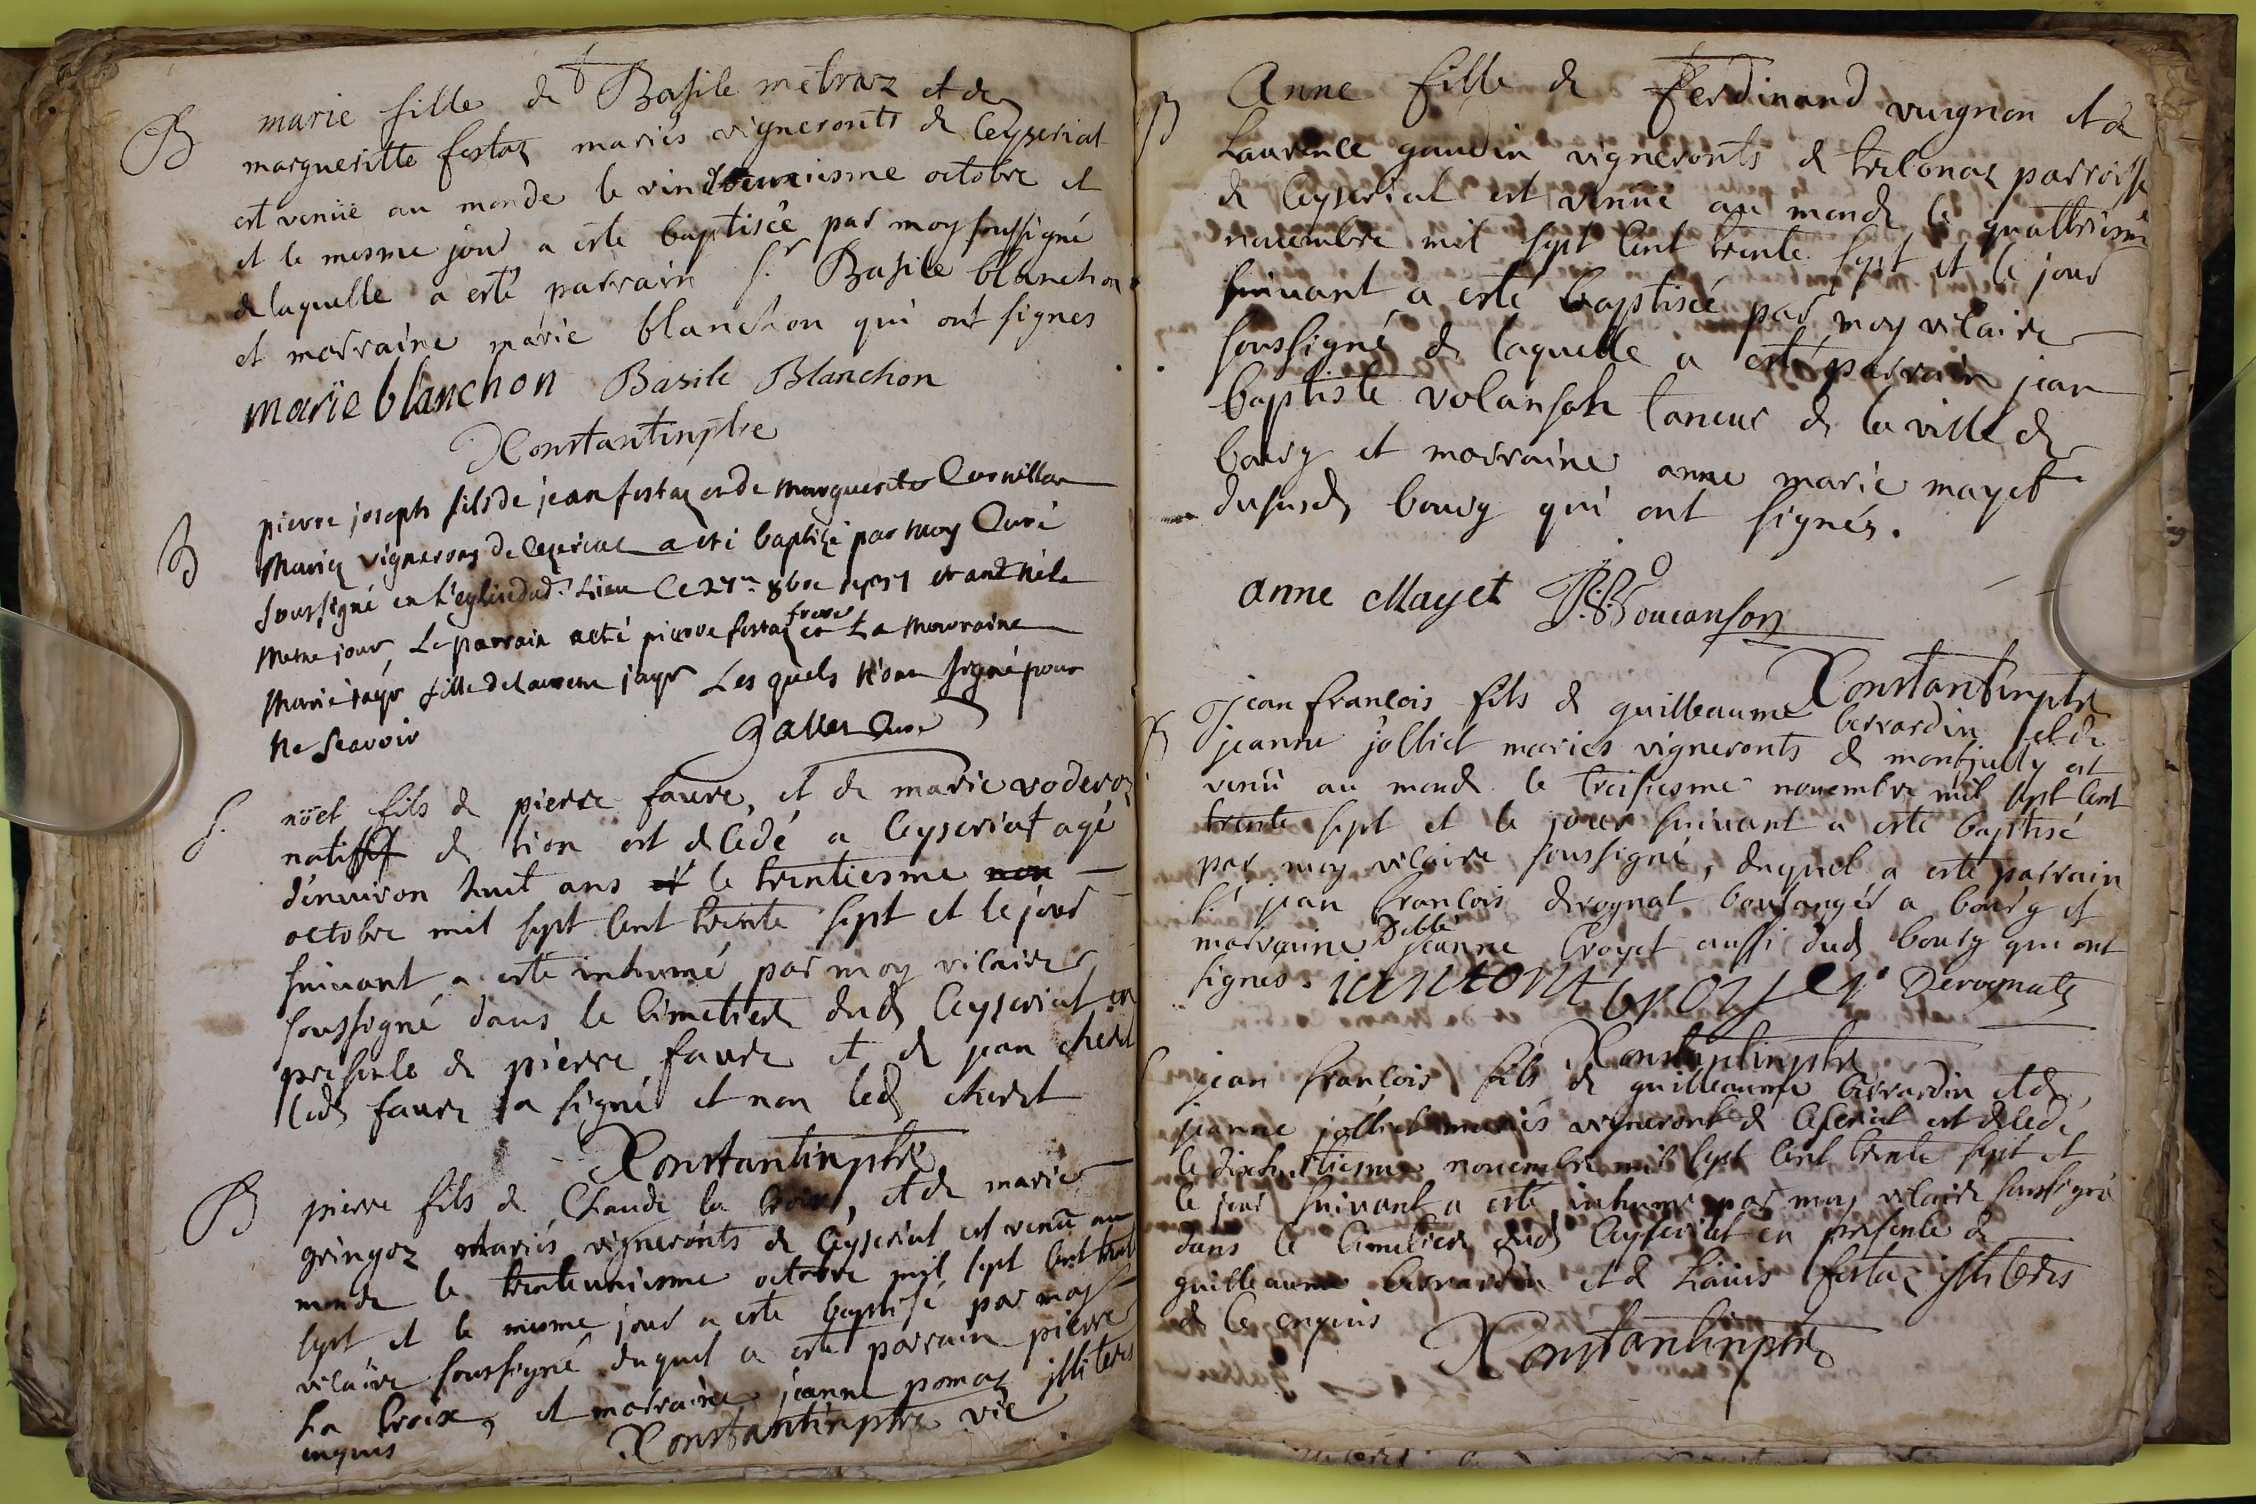 B marie fille de Basile metraz et de
margueritte festaz mariés vigneronts de Ceyseriat
est venüe au monde le octobre et
et le mesme jour a esté baptisée par moy soussigné
de laquelle a esté parrain sr Basile blanchon
et marraine marie blanchon qui ont signes
marie blanchon Basile Blanchon
Constantin ptre
B pierre joseph fils de jean festaz et de marguerite Cornillon
mariez vignerons de Ceyseriat a eté baptizé par moy Curé
soussigné en l'eglise dud. Lieu Ce 27me 8bre 1737 etant né le
meme jour, Le parrain a eté pierre festaz frere et La marraine
Marie jayr fille de laurent jayr Les quels n'ont signé pour
ne scavoir Galler Curé
S. noël fils de pierre faure, et de marie voderoz
natif de lion est decedé a Ceyseriat agé
d'environ huit ans le trentiesme
octobre mil sept cent trente sept et le jour
suivant a esté inhumé par moy vicaire
soussigné dans le cimetiere dud Ceyseriat en
presence de pierre faure et de jean cherel
led faure a signé et non led cherel
Constantin ptre
B pierre fils de Claude la Croix, et de marie
gringoz mariés vigneronts de Ceyseriat est venu au
monde le trenteuniesme octobre mil sept cent trente
sept et le mesme jour a esté baptisé par moy
vicaire soussigné duquel a esté parrain pierre
La Croix, et marraine jeanne pomaz illiteres
enquis Constantin ptre vic
B Anne fille de Ferdinand vuignon et de
Laurence gaudin vigneronts de treconaz parroisse
de Ceyseriat est venüe au monde le quattriesme
novembre mil sept cent trente sept et le jour
suivant a esté baptisée par moy vicaire
soussigné de laquelle a esté parrain jean
baptiste vocanson taneur de la ville de
bourg et marraine anne marie mayet
dususd bourg qui ont signés.
anne Mayet J. B. Voucanson
Constantin ptre
B jean francois fils de guilleaume berrardin et de
jeanne jolliet mariés vigneronts de montjuly est
venü au monde le treisiesme novembre mil sept cent
trente sept et le jour suivant a esté baptisé
par moy vicaire soussigné, duquel a esté parrain
sr jean francois derognat boulangér a bourg et
marraine Delle jeanne Croyet aussi dud bourg qui ont
signés. Derognat
Constantin ptre
S jean francois fils de guilleaume berrardin et de
jeanne jolliet mariés vigneront de Ceseriat est decede
le dixhuittiesme novembre mil sept cent trente sept et
le jour suivant a esté inhumé par moy vicaire soussigné
dans le cimetiere dud Ceyseriat en presence de
guilleaume berrardin et de Louis festaz illiteres
de ce enquis
Constantin ptre